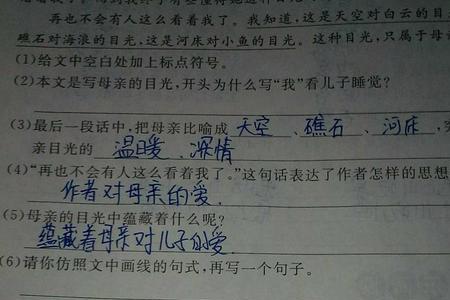 再也不会有人这么看着我了。我知道,这是天空对白云的目
礁石对海浪的目光,这是河床对小鱼的目光。这种目光,只属于母
(1)给文中空白处加上标点符号。
(2)本文是写母亲的目光,开头为什么写“我”看儿子睡觉?
(3)最后一段话中,把母亲比喻成 天空 、礁石 、河床 ,
亲目光的 温暖 、深情
(4)“再也不会有人这么看着我了。”这句话表达了作者怎样的思想
作者对母亲的爱.
(5)母亲的目光中蕴藏着什么呢?
蕴藏着母亲对儿子的爱
(6)请你仿照文中画线的句式,再写一个句子。